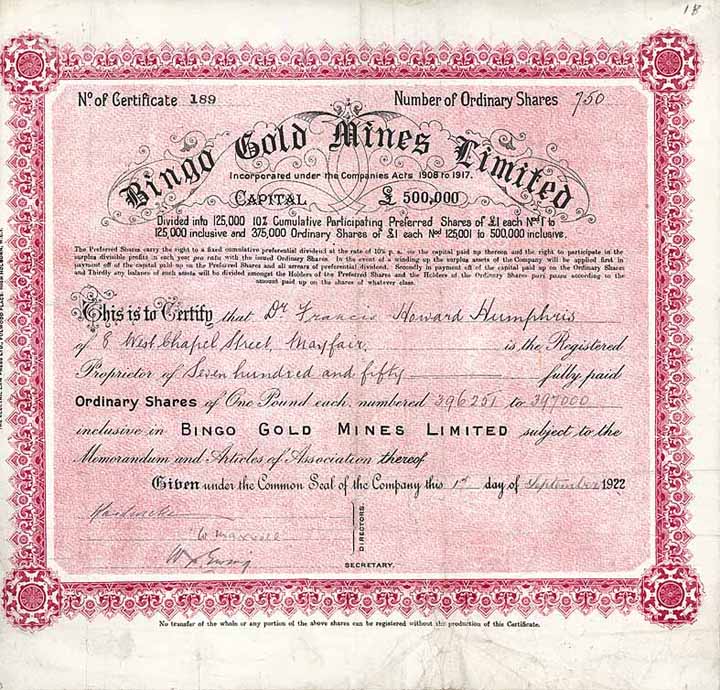 18
Nº of Certificate 189 Number of Ordinary Shares 750
Bingo Gold Mines Limited
Incorporated under the Companies Acts 1908 to 1917.
CAPITAL £ 500,000
Divided into 125,000 10% Cumulative Participating Preferred Shares of £1 each Nos 1 to
125,000 inclusive and 375,000 Ordinary Shares of £1 each Nos 125,001 to 500,000 inclusive.
The Preferred Shares carry the right to a fixed cumulative preferential dividend at the rate of 10% p. a. on the capital paid up thereon and the right to participate in the
surplus divisible profits in each year pro rata with the issued Ordinary Shares. In the event of a winding up the surplus assets of the Company will be applied first in
payment off of the capital paid up on the Preferred Shares and all arrears of preferential dividend. Secondly in payment off of the capital paid up on the Ordinary Shares
and Thirdly any balance of such assets will be divided amongst the Holders of the Preferred Shares and the Holders of the Ordinary Shares pari passu according to the
amount paid up on the shares of whatever class.
This is to Certify that Dr. Francis Howard Humphris
of 8 West Chapel Street, Mayfair, is the Registered
Proprietor of Seven hundred and fifty fully paid
Ordinary Shares of One Pound each, numbered 396251 to 397000
inclusive in BINGO GOLD MINES LIMITED subject to the
Memorandum and Articles of Association thereof
Given under the Common Seal of the Company this 1st day of September 1922
DIRECTORS.
SECRETARY.
No transfer of the whole or any portion of the above shares can be registered without the production of this Certificate.